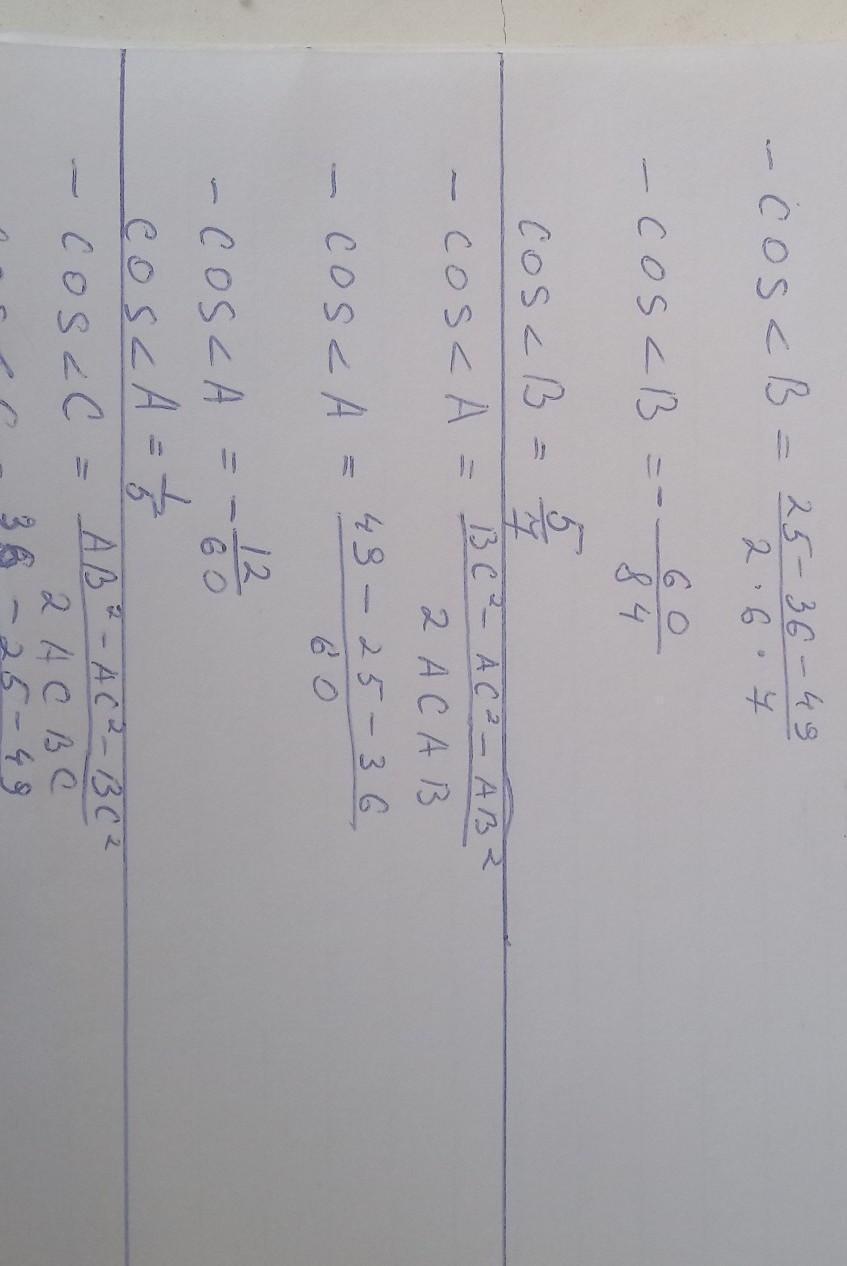 - cos < B = 25 - 36 - 49 / 2 · 6 · 7
- cos < B = - 60 / 84
cos < B = 5 / 7
- cos < A = BC² - AC² - AB² / 2 AC AB
- cos < A = 49 - 25 - 36 / 60
- cos < A = - 12 / 60
cos < A = 1 / 5
- cos < C = AB² - AC² - BC² / 2 AC BC
36 - 25 - 49